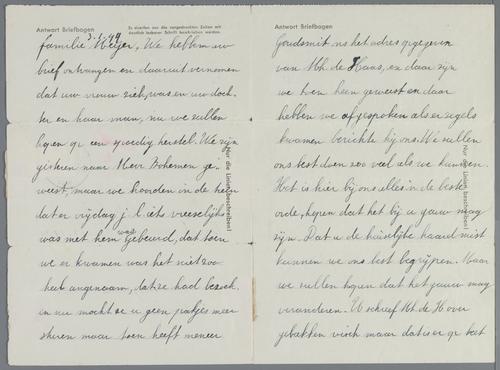 Antwort Briefbogen
Es dürfen nur die vorgedruckten Zeilen mit
deutlich lesbarer Schrift beschrieben werden.
3.1.44
familie Meijer, We hebben uw
brief ontvangen en daaruit vernomen
dat uw vrouw ziek was en uw doch
ter en haar man, nu we zullen
hopen op een spoedig herstel. We zijn
gisteren naar Heer Bohemen ge
weest, maar we konden in de
dat er vrijdag j l. iets vreeselijks
was met hem was gebeurd, dat toen
we er kwamen was het niet zoo
heel aangenaam, dat ze had bezoek.
en nu mocht ze u geen pakjes meer
sturen maar toen heeft meneer
Nur die Linien beschreiben!
Antwort Briefbogen
Goudsmit ons het adres opgegeven
van Mh. de Haas, en daar zijn
we toen heen geweest en daar
hebben we afgesproken als er zegels
kwamen berichte bij ons. We zullen
ons best doen zoo veel als we kunnen.
Het is hier bij ons alles in de beste
orde, hopen dat het bij u gauw mag
zijn. Dat u de huiselijke haard mist
kunnen we ons best begrijpen. Maar
we zullen hopen dat het gauw mag
veranderen. U schreef Mh. de H over
gebakken visch maar dat is er op best
Nur die Linien beschreiben!